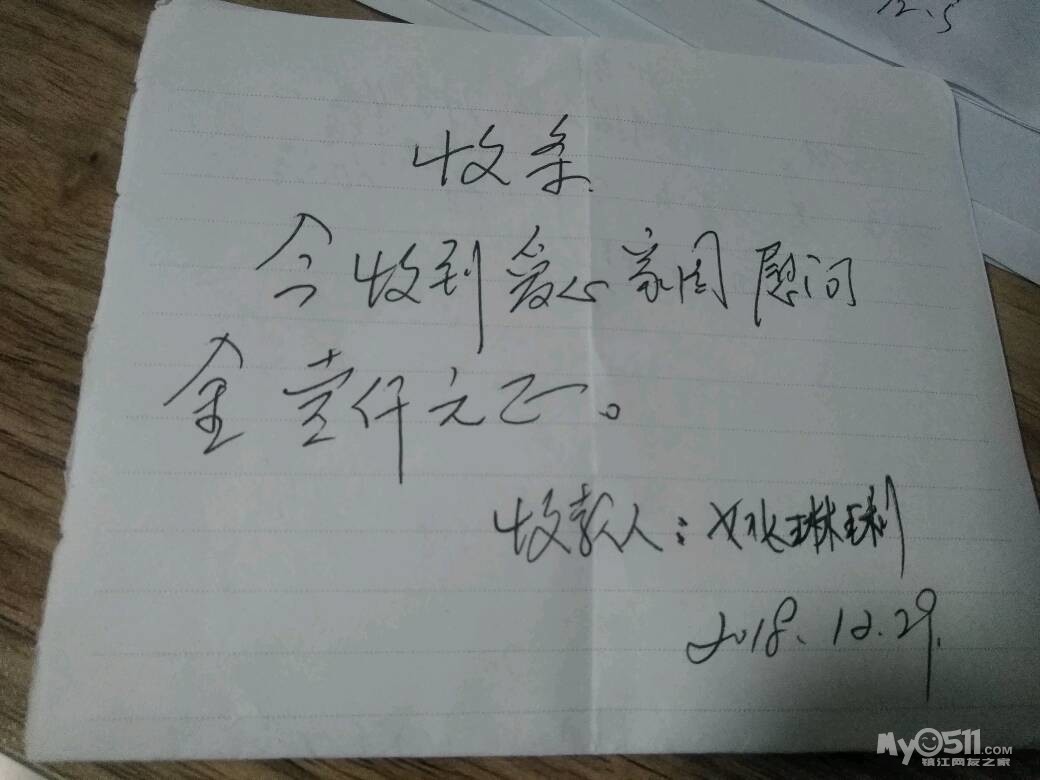 12.5
收条
今收到爱心家园慰问
金壹仟元正。
收款人:姚琳琍
2018.12.29.
My0511.COM
镇江网友之家